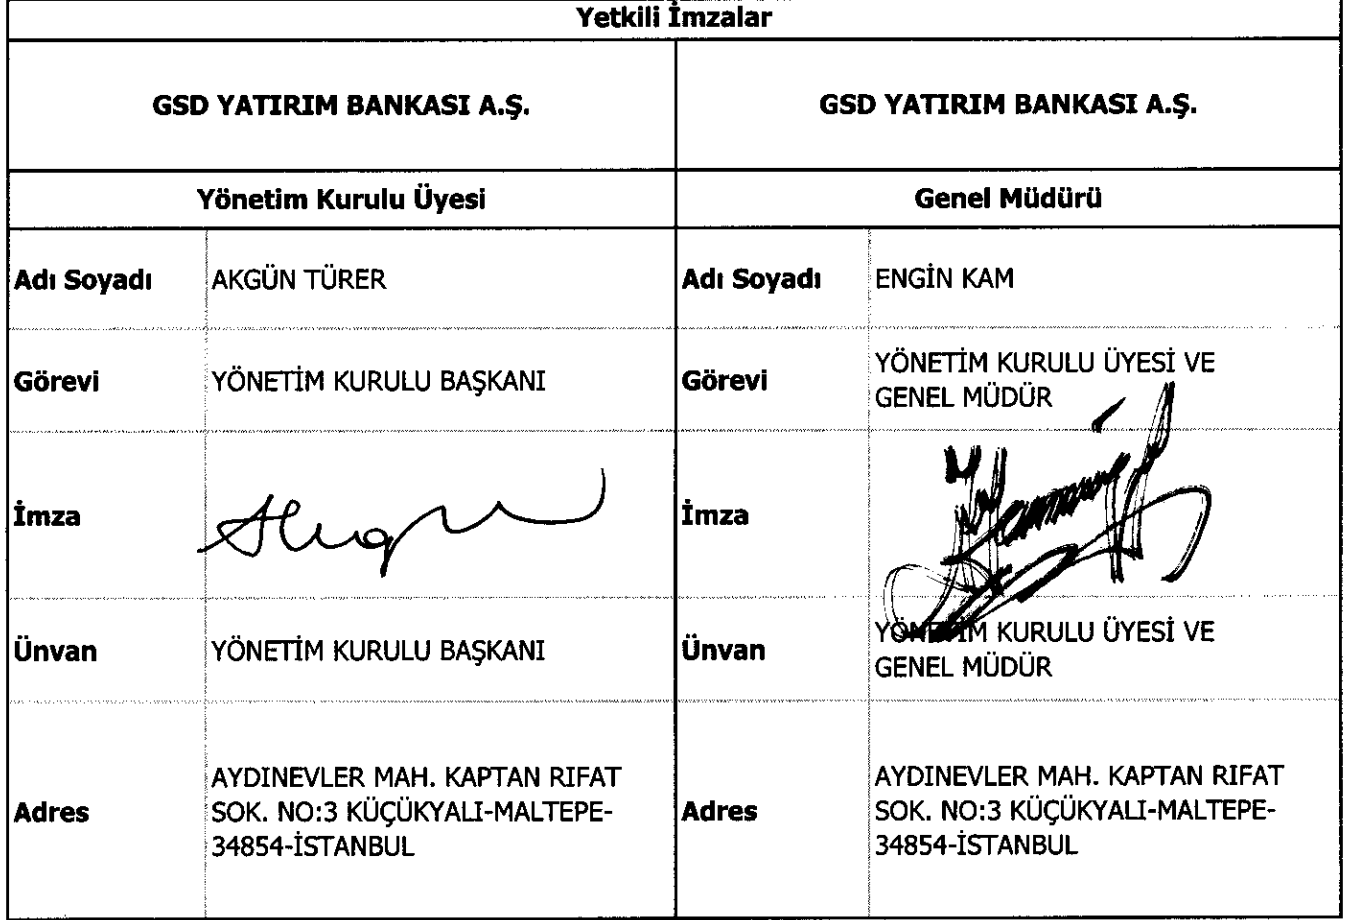 Yetkili İmzalar
GSD YATIRIM BANKASI A.Ş.
GSD YATIRIM BANKASI A.Ş.
Yönetim Kurulu Üyesi
Genel Müdürü
Adı Soyadı
AKGÜN TÜRER
Adı Soyadı
ENGİN KAM
Görevi
YÖNETİM KURULU BAŞKANI
Görevi
YÖNETİM KURULU ÜYESİ VE
GENEL MÜDÜR
İmza
İmza
Ünvan
YÖNETİM KURULU BAŞKANI
Ünvan
YÖNETİM KURULU ÜYESİ VE
GENEL MÜDÜR
Adres
AYDINEVLER MAH. KAPTAN RIFAT
SOK. NO:3 KÜÇÜKYALI-MALTEPE-
34854-İSTANBUL
Adres
AYDINEVLER MAH. KAPTAN RIFAT
SOK. NO:3 KÜÇÜKYALI-MALTEPE-
34854-İSTANBUL